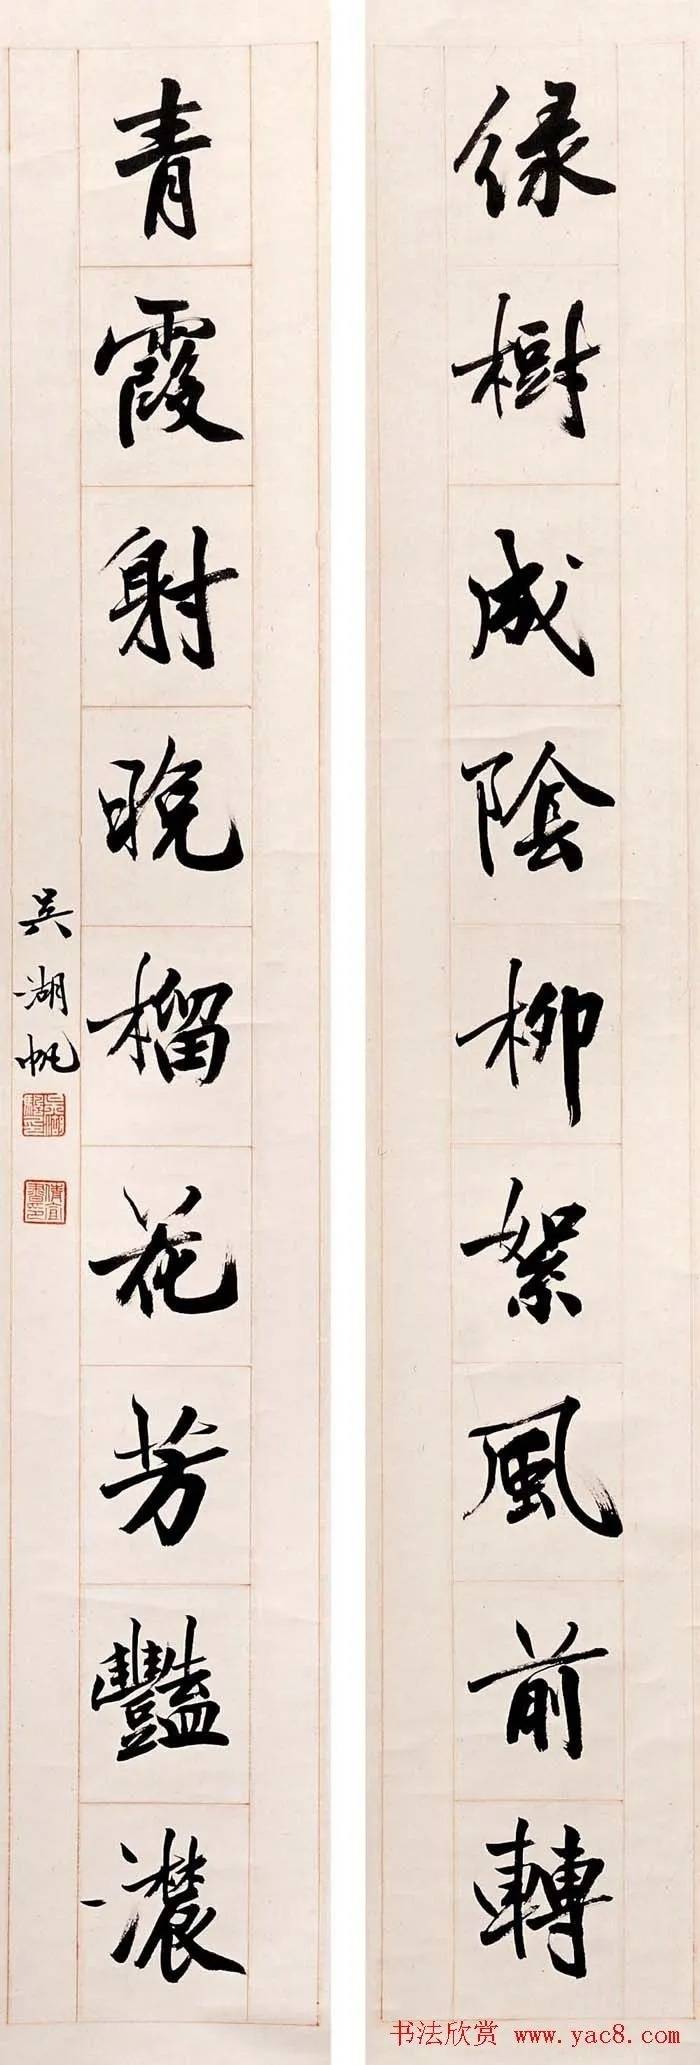 緑樹成陰柳絮風前轉
青霞射晚榴花芳豔濃
吳湖帆
书法欣赏 www.yac8.com